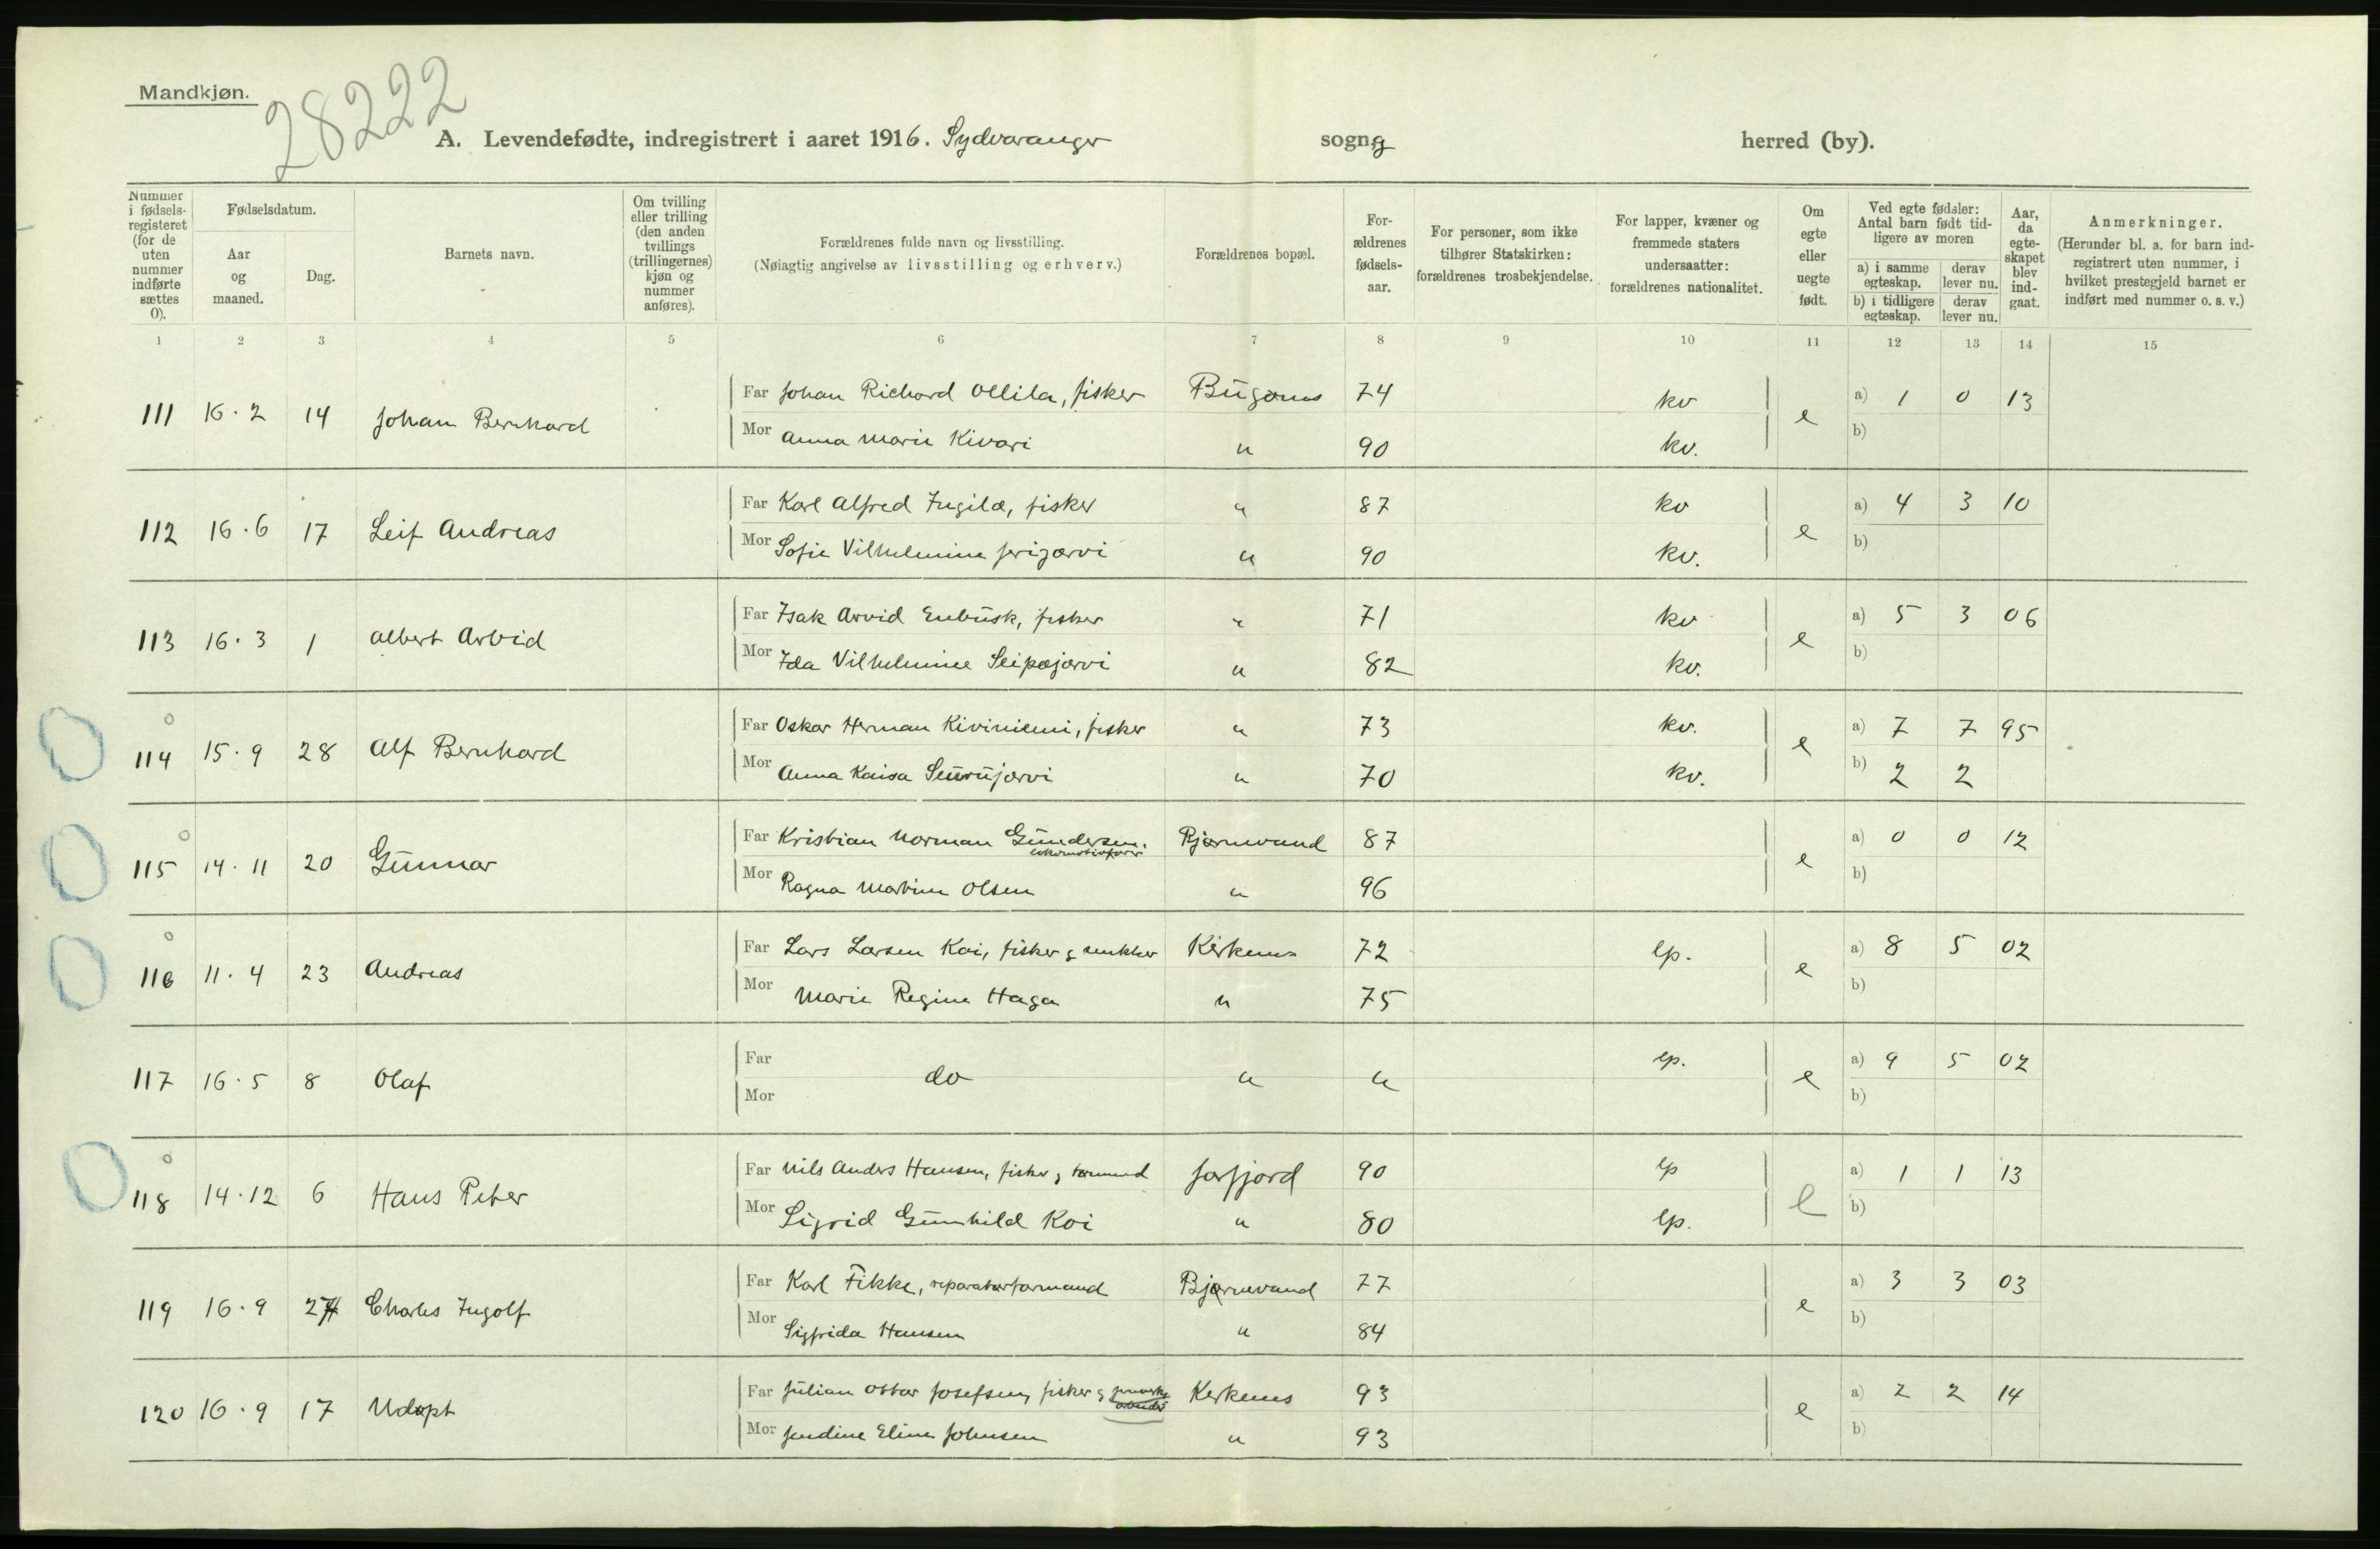 Mandkjøn.
28222
A. Levendefødte, indregistrert i aaret 1916. Sydvaranger sogn og herred (by).
Nummer i fødsels-registeret (for de uten nummer indførte sættes 0).
Fødselsdatum.
Aar og maaned.
Dag.
Barnets navn.
Om tvilling eller trilling (den anden tvillings (trillingernes) kjøn og nummer anføres).
Forældrenes fulde navn og livsstilling.
(Nøiagtig angivelse av livsstilling og erhverv.)
Forældrenes bopæl.
For-ældrenes fødsels-aar.
For personer, som ikke tilhører Statskirken: forældrenes trosbekjendelse.
For lapper, kvæner og fremmede staters undersaatter: forældrenes nationalitet.
Om egte eller uegte født.
Ved egte fødsler: Antal barn født tid-ligere av moren
a) i samme egteskap. derav lever nu.
b) i tidligere egteskap. derav lever nu.
Aar, da egte-skapet blev ind-gaat.
Anmerkninger.
(Herunder bl. a. for barn ind-registrert uten nummer, i hvilket prestegjeld barnet er indført med nummer o. s. v.)
1 2 3 4 5 6 7 8 9 10 11 12 13 14 15
111 16.2 14 Johan Bernhard Far Johan Richard Ollila, fisker Bugønes 74 kv e a) 1 0 13
Mor Anna Marie Kivari " 90 kv. b)
112 16.6 17 Leif Andreas Far Karl Alfred Ingilæ, fisker " 87 kv e a) 4 3 10
Mor Sofie Vilhelmine " 90 kv. b)
113 16.3 1 Albert Arvid Far Isak Arvid Enbusk, fisker " 71 kv e a) 5 3 06
Mor Ida Vilhelmine Seipæjærvi " 82 kv. b)
0
114 15.9 28 Alf Bernhard Far Oskar Herman Kiviniemi, fisker " 73 kv. e a) 7 7 95
Mor Anna Kaisa Seurujærvi " 70 kv. b) 2 2
0
115 14.11 20 Gunnar Far Kristian Norman Gundersen, lokomotivfører Bjørnevand 87 e a) 0 0 12
Mor Ragna Martine Olsen " 96 b)
0
116 11.4 23 Andreas Far Lars Larsen Koi, fisker & snekker Kirkenes 72 lp. e a) 8 5 02
Mor Marie Regine Haga " 75 b)
117 16.5 8 Olaf Far do " " lp. e a) 9 5 02
Mor b)
0
118 14.12 6 Hans Peter Far Nils Anders Hansen, fisker & Jarfjord 90 lp e a) 1 1 13
Mor Sigrid Gunhild Koi " 80 lp. b)
119 16.9 27 Charles Ingolf Far Karl Fikke, reparatørformand Bjørnevand 77 e a) 3 3 03
Mor Sigfrida Hansen " 84 b)
120 16.9 17 Udøpt Far Julian Ottar Josefsen, fisker & arbeider Kirkenes 93 e a) 2 2 14
Mor Jendine Eline Johnsen " 93 b)